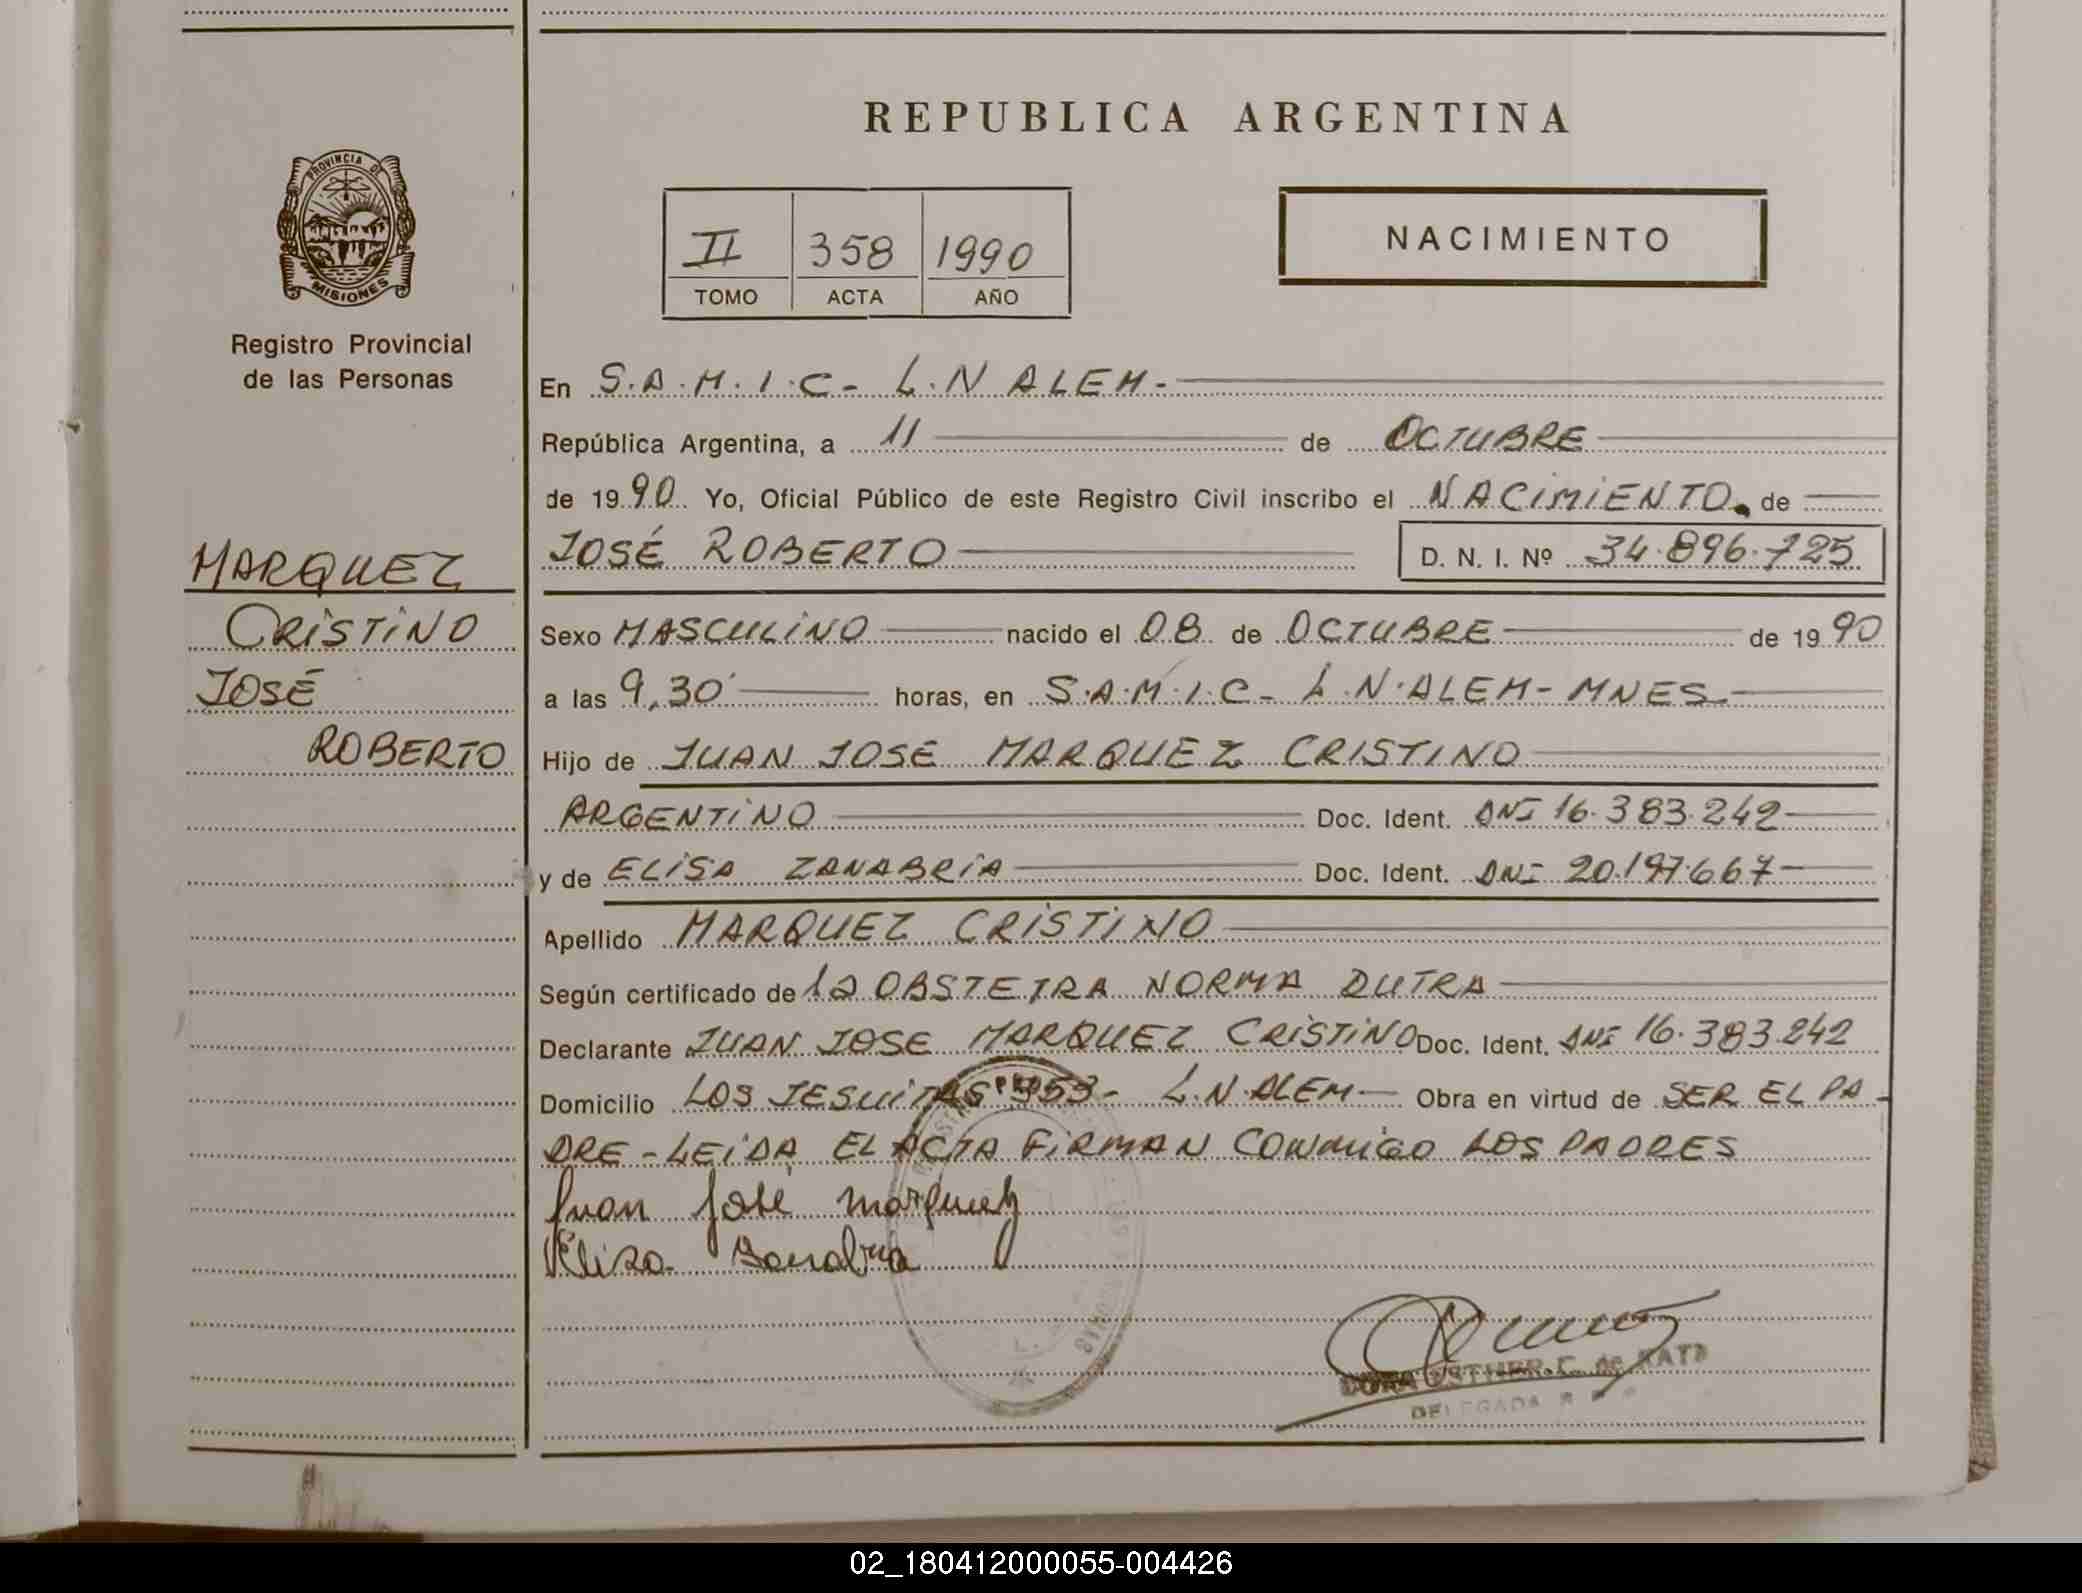 REPUBLICA ARGENTINA
PROVINCIA DE
MISIONES
Registro Provincial
de las Personas
II 358 1990
TOMO ACTA AÑO
NACIMIENTO
En S.A.M.I.C- L.N ALEM-
República Argentina, a 11 de OCTUBRE
de 1990 Yo, Oficial Público de este Registro Civil inscribo el NACIMIENTO. de
JOSÉ ROBERTO D. N. I. Nº 34.896.725
MARQUEZ
CRISTINO
JOSÉ
ROBERTO
Sexo MASCULINO nacido el 08 de OCTUBRE de 1990
a las 9,30' horas, en S.A.M.I.C- L.N.ALEM-MNES-
Hijo de JUAN JOSE MARQUEZ CRISTINO
ARGENTINO Doc. Ident. DNI 16.383.242
y de ELISA ZANABRIA Doc. Ident. DNI 20.197.667
Apellido MARQUEZ CRISTINO
Según certificado de la OBSTETRA NORMA DUTRA
Declarante JUAN JOSE MARQUEZ CRISTINO Doc. Ident. DNI 16.383.242
Domicilio LOS JESUITAS 353- L.N.ALEM- Obra en virtud de SER EL PA-
DRE-LEIDA EL ACTA FIRMAN CONMIGO LOS PADRES
Juan José Marquez
Elisa Sanabria
ESTHER C. de
DELEGADA
02_180412000055-004426